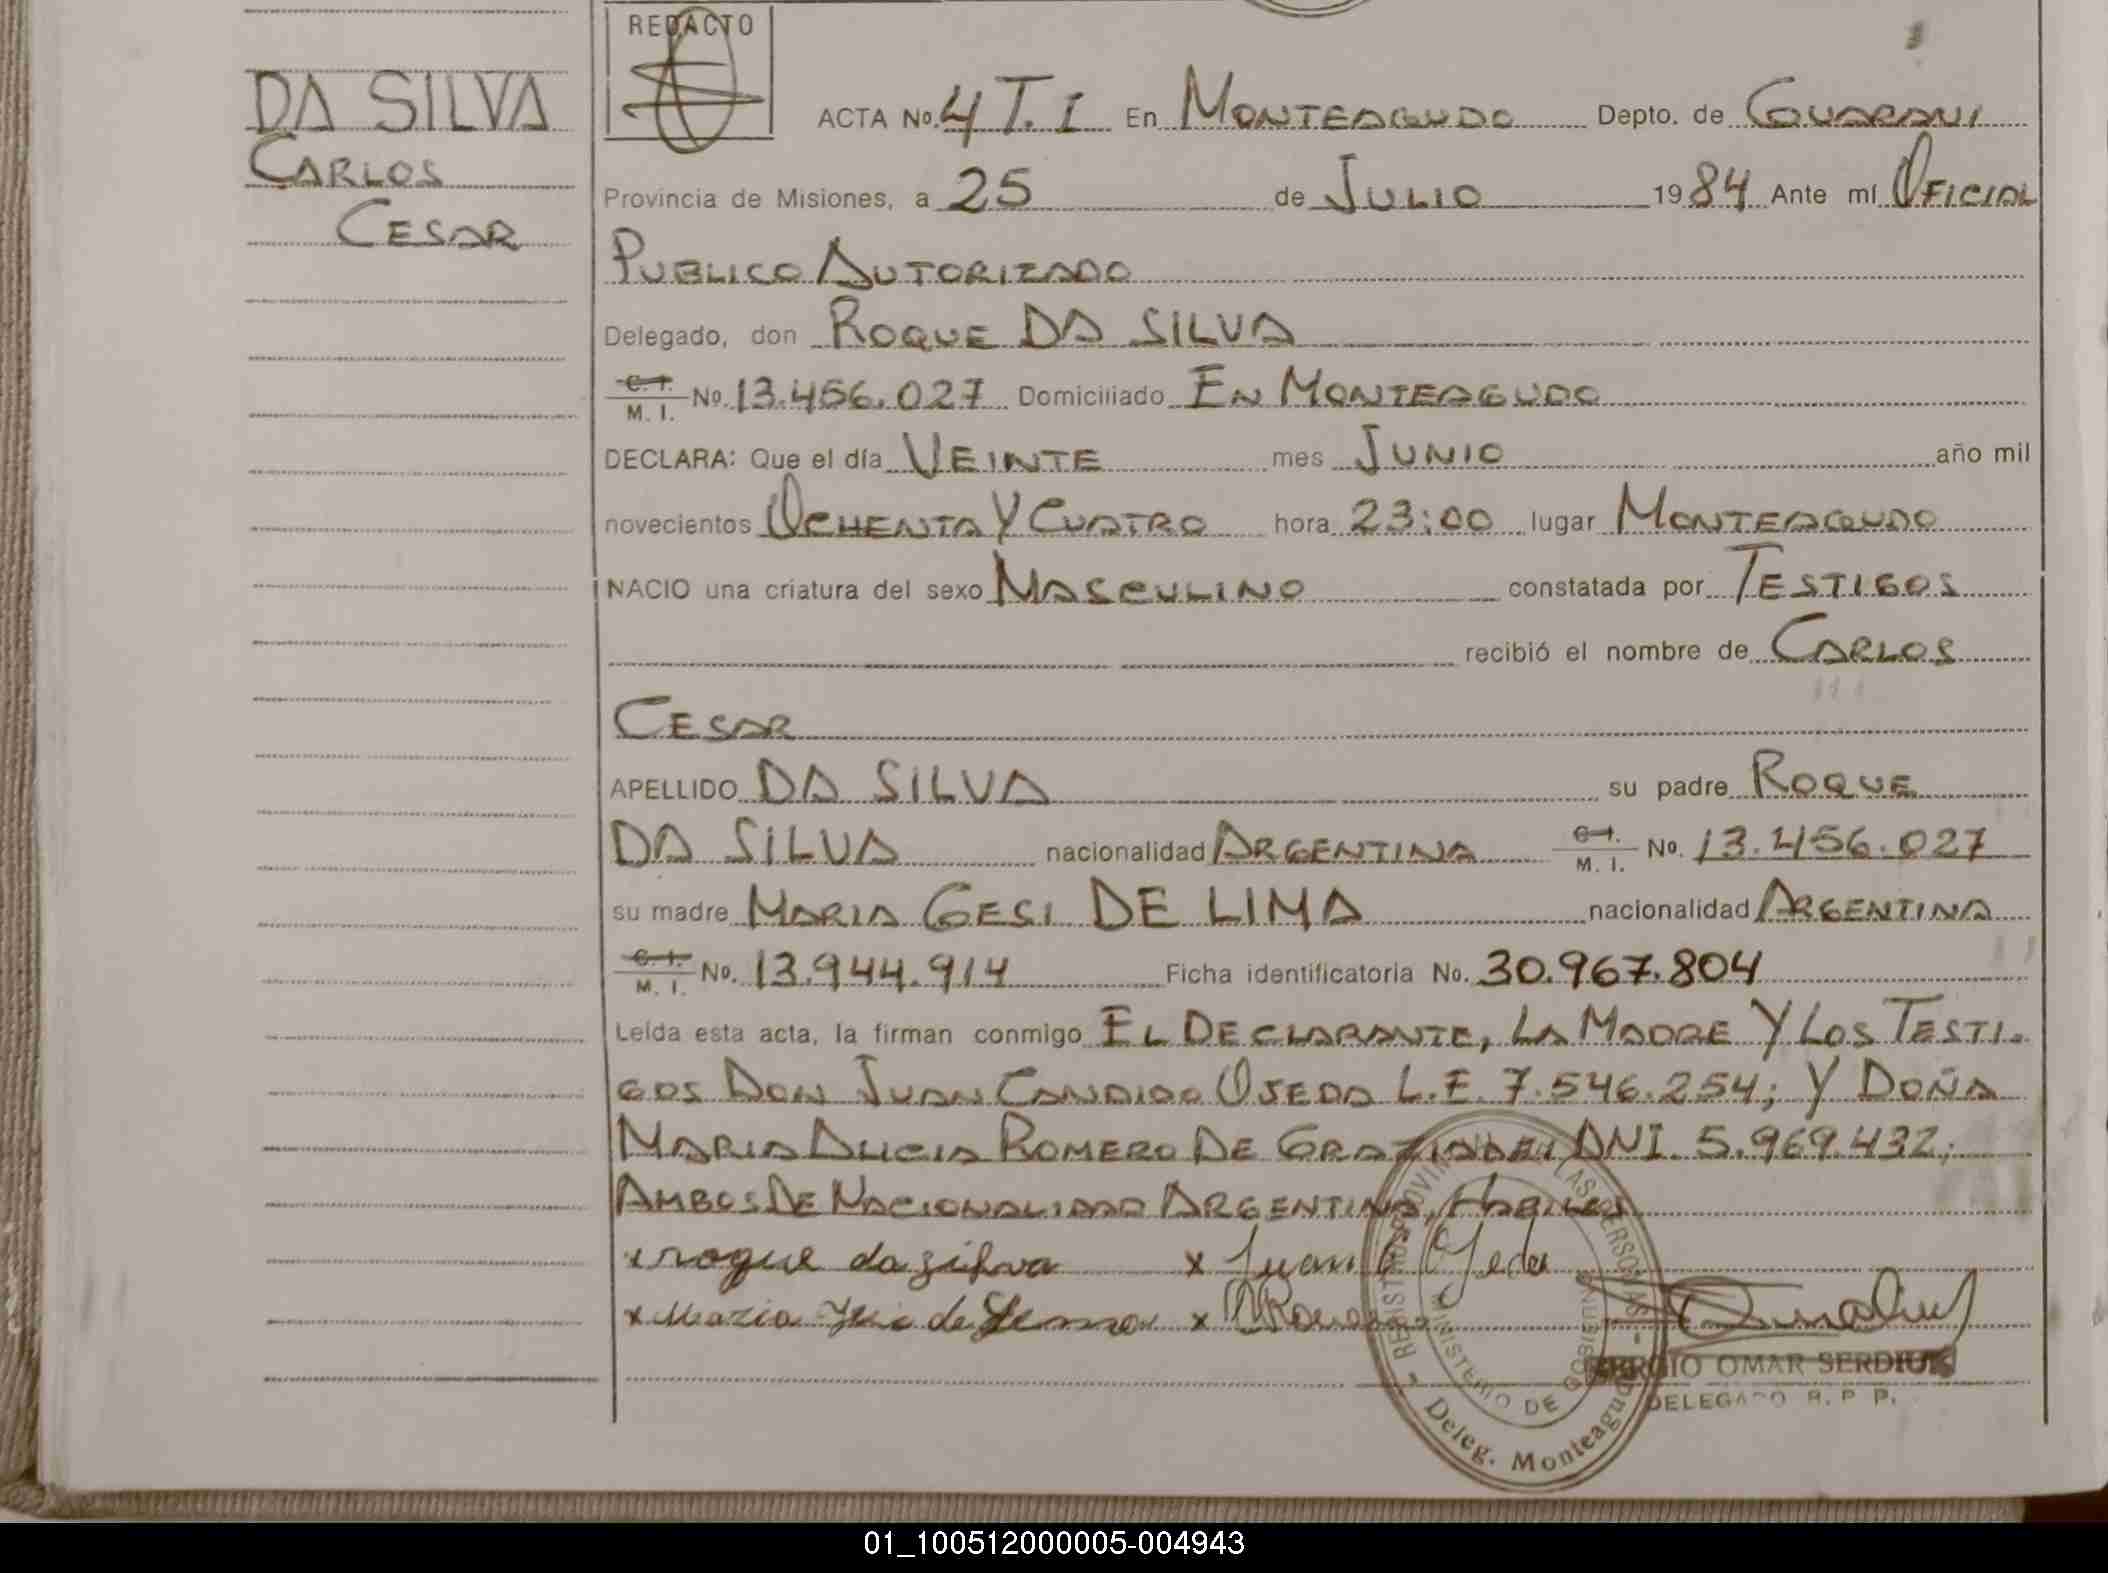 DA SILVA
CARLOS
CESAR
REDACTO
ACTA No. 4 T. I En MONTEAGUDO Depto. de GUARANI
Provincia de Misiones, a 25 de JULIO 1984 Ante mí OFICIAL
PUBLICO AUTORIZADO
Delegado, don ROQUE DA SILVA
C. I. M. I. No. 13.456.027 Domiciliado EN MONTEAGUDO
DECLARA: Que el día VEINTE mes JUNIO año mil
novecientos OCHENTA Y CUATRO hora 23:00 lugar MONTEAGUDO
NACIO una criatura del sexo MASCULINO constatada por TESTIGOS
recibió el nombre de CARLOS
CESAR
APELLIDO DA SILVA su padre ROQUE
DA SILVA nacionalidad ARGENTINA C. I. M. I. No. 13.456.027
su madre MARIA GESI DE LIMA nacionalidad ARGENTINA
C. I. M. I. No. 13.944.914 Ficha identificatoria No. 30.967.804
Leída esta acta, la firman conmigo EL DECLARANTE, LA MADRE Y LOS TESTI-
GOS DON JUAN CANDIDO OJEDA L.E. 7.546.254; Y DOÑA
MARIA ALICIA ROMERO DE GRAZIADEI DNI. 5.969.432;
AMBOS DE NACIONALIDAD ARGENTINA, HABILES
x roque da silva x Juan C Ojeda
x Maria de x
SERGIO OMAR SERDIUK
DELEGADO R. P. P.
MINISTERIO DE GOBIERNO
Deleg. Monteagudo
01_100512000005-004943